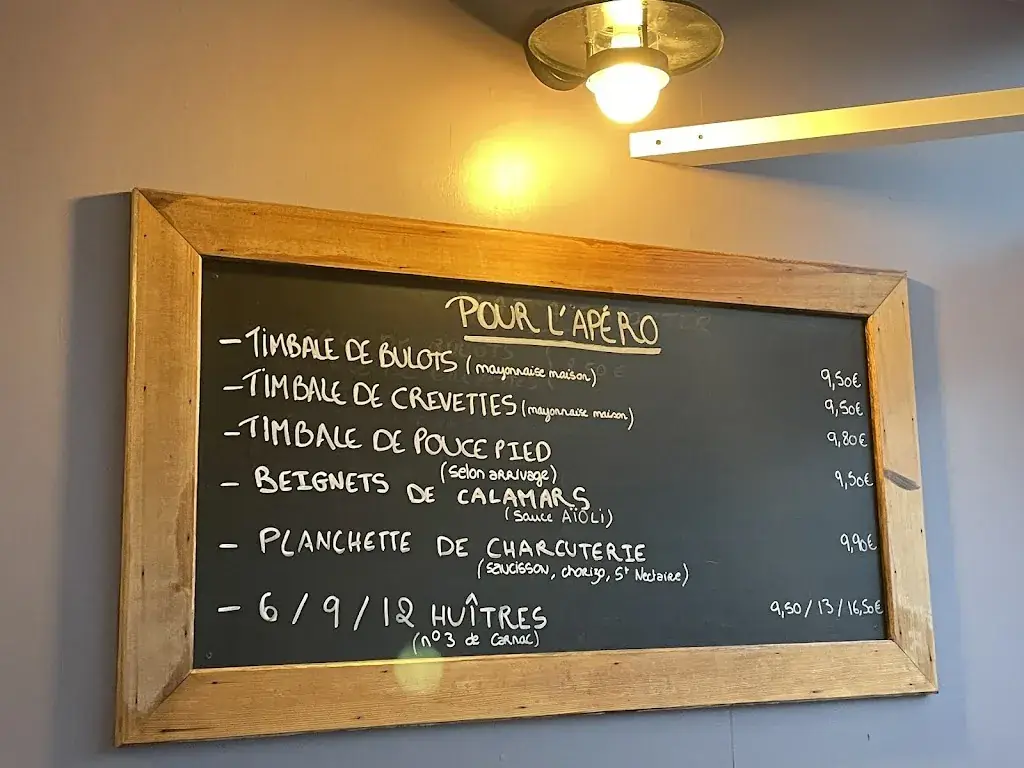 POUR L'APÉRO
- TIMBALE DE BULOTS (mayonnaise maison) 9,50€
- TIMBALE DE CREVETTES (mayonnaise maison) 9,50€
- TIMBALE DE POUCE PIED 9,80€
(selon arrivage)
- BEIGNETS DE CALAMARS 9,50€
(sauce AÏOLI)
- PLANCHETTE DE CHARCUTERIE 9,90€
(saucisson, chorizo, St Nectaire)
- 6 / 9 / 12 HUÎTRES 9,50 / 13 / 16,50€
(n°3 de Carnac)